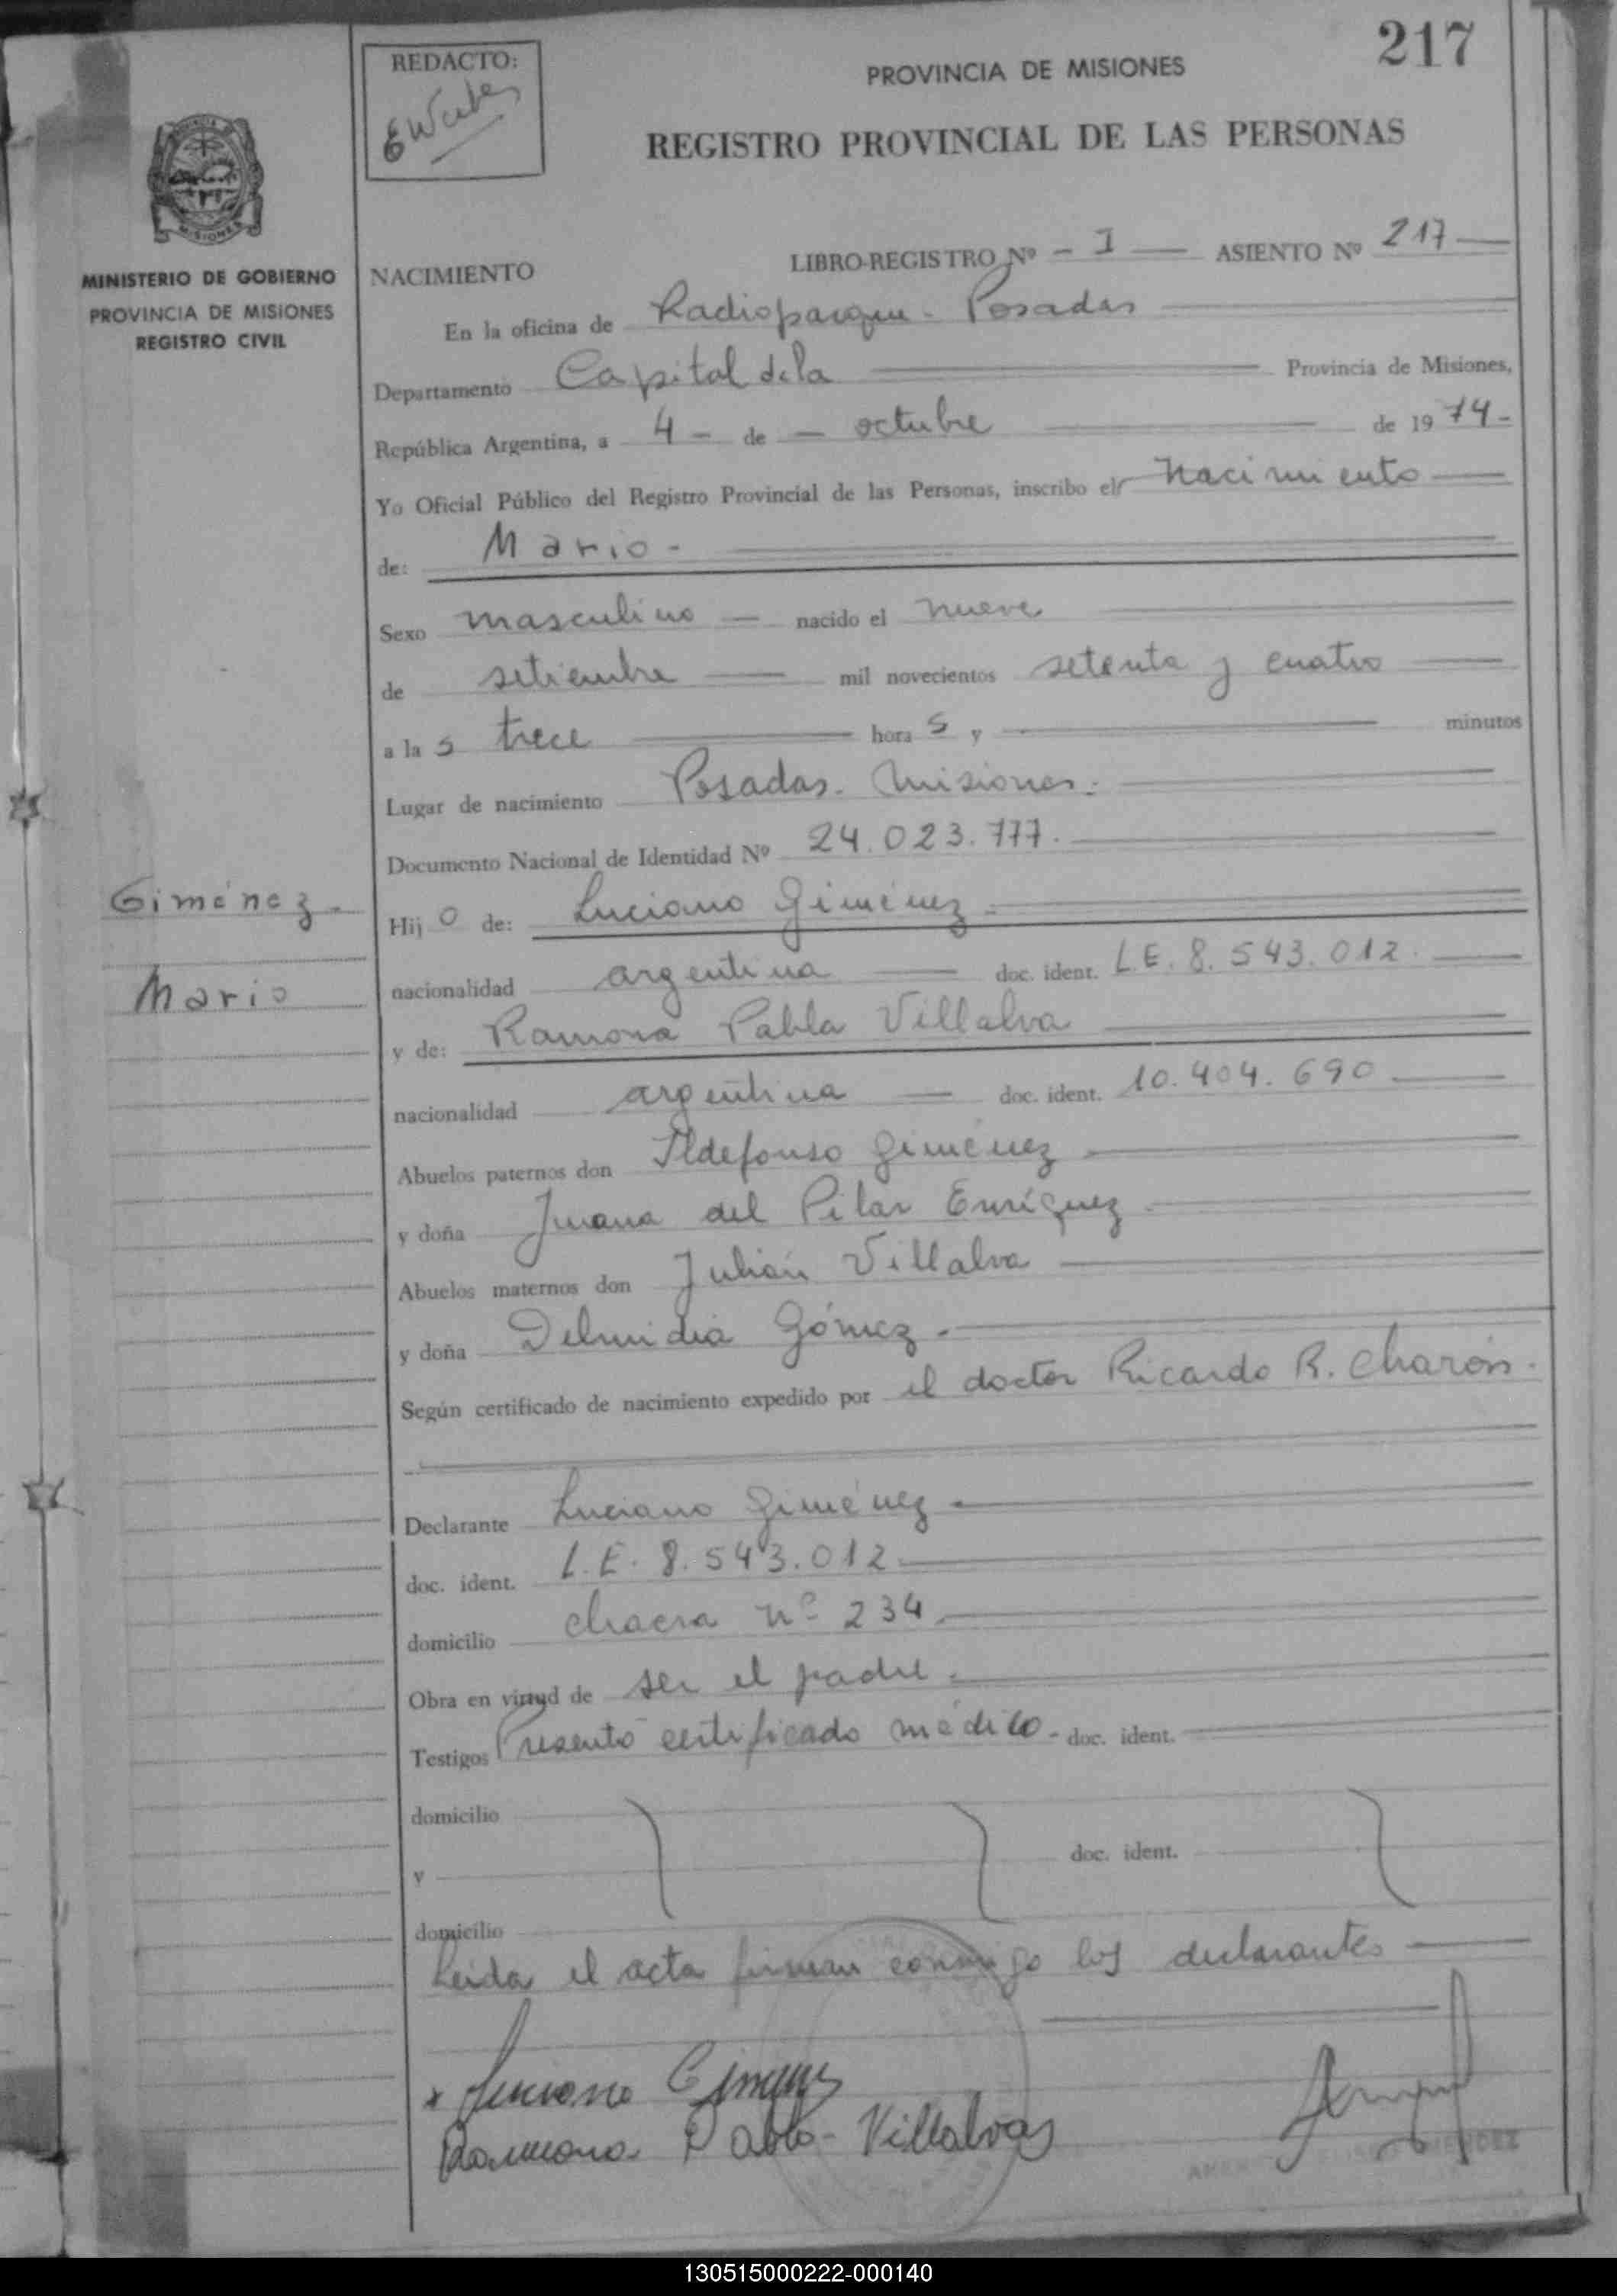 217
REDACTO:
PROVINCIA DE MISIONES
REGISTRO PROVINCIAL DE LAS PERSONAS
MISIONES
MINISTERIO DE GOBIERNO
PROVINCIA DE MISIONES
REGISTRO CIVIL
NACIMIENTO LIBRO-REGISTRO Nº - I — ASIENTO Nº 217 —
En la oficina de Radioparque - Posadas
Departamento Capital de la Provincia de Misiones,
República Argentina, a 4 - de - octubre de 19 74 -
Yo Oficial Público del Registro Provincial de las Personas, inscribo el Nacimiento
de: Mario -
Sexo masculino — nacido el nueve
de setiembre — mil novecientos setenta y cuatro
a la s trece hora s y minutos
Lugar de nacimiento Posadas. Misiones.
Documento Nacional de Identidad Nº 24.023.777.
Giménez -
Hij o de: Luciano Giménez -
nacionalidad argentina — doc. ident. L.E. 8.543.012.
Mario
y de: Ramona Pabla Villalva
nacionalidad argentina — doc. ident. 10.404.690
Abuelos paternos don Ildefonso Giménez
y doña Juana del Pilar Enríquez
Abuelos maternos don Julián Villalva
y doña Delmidia Gómez.
Según certificado de nacimiento expedido por el doctor Ricardo R. Charón.
Declarante Luciano Giménez
doc. ident. L.E. 8.543.012
domicilio chacra nº 234
Obra en virtud de ser el padre.
Testigos Presentó certificado médico - doc. ident.
domicilio
y doc. ident.
domicilio
Leída el acta firman conmigo los declarantes
Luciano Gimenez
Ramona Pabla Villalva
130515000222-000140